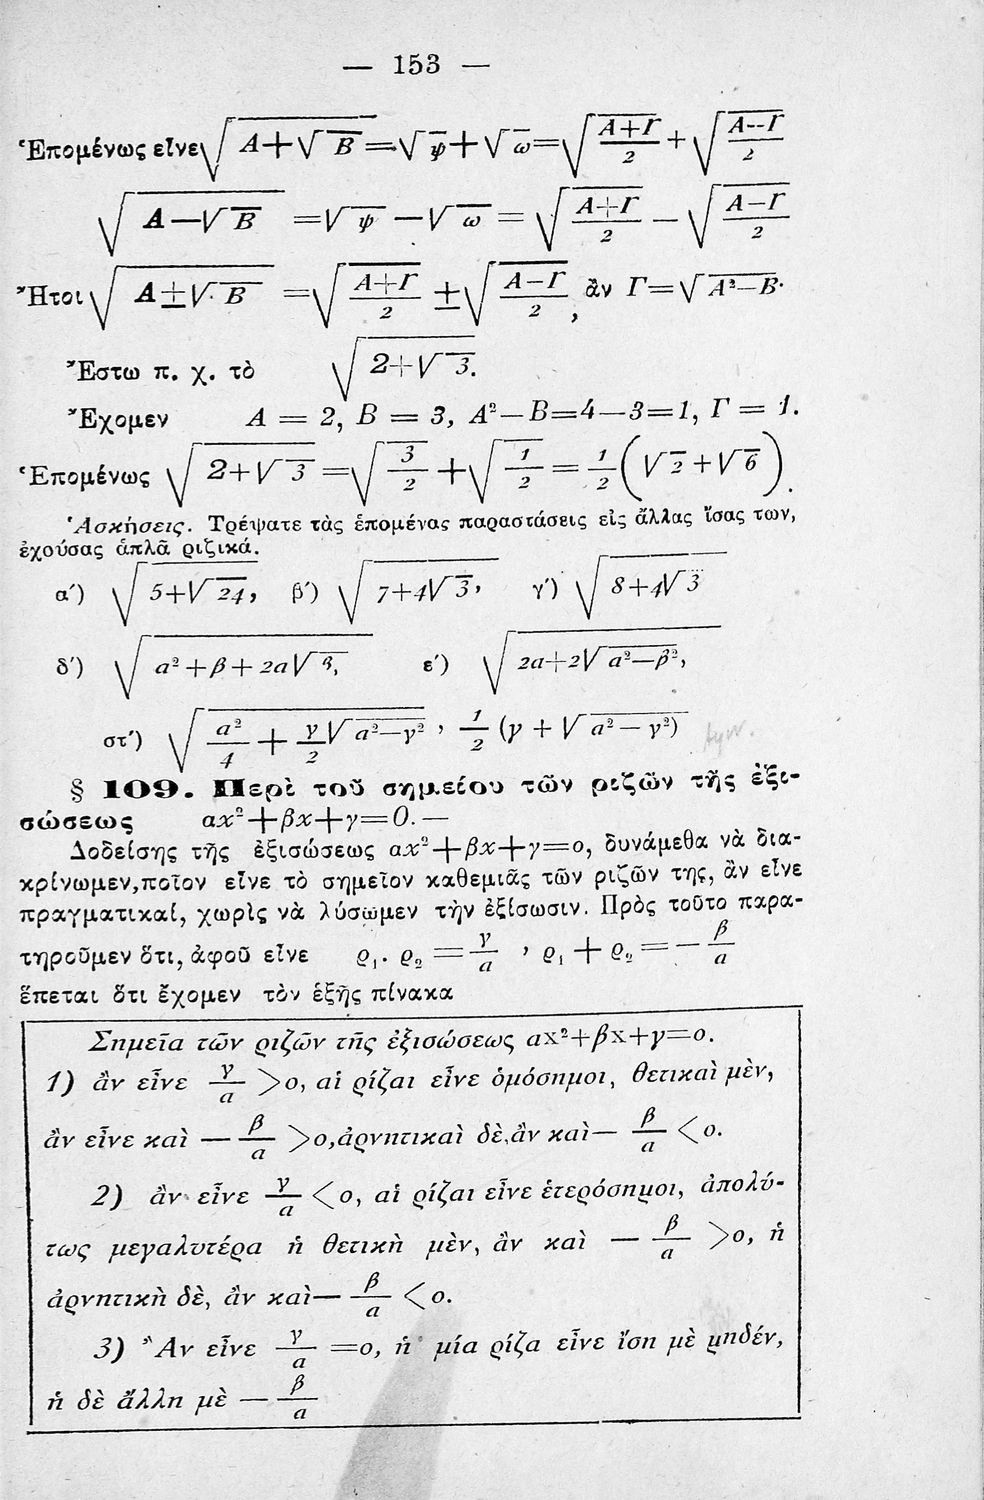 — 153 —
Ἑπομένως εἶνε √(A+√B)=√ψ+√ω=√((A+Γ)/2)+√((A-Γ)/2)
√(A—√B) =√ψ —√ω = √((A+Γ)/2) — √((A—Γ)/2)
Ἤτοι √(A±√B) =√((A+Γ)/2) ±√((A—Γ)/2), ἂν Γ=√(A²—B).
Ἔστω π. χ. τὸ √(2+√3).
Ἔχομεν A = 2, B = 3, A²—B=4—3=1, Γ = 1.
Ἑπομένως √(2+√3) =√(3/2) +√(1/2) = 1/2 (√2+√6).
Ἀσκήσεις. Τρέψατε τὰς ἑπομένας παραστάσεις εἰς ἄλλας ἴσας των,
ἐχούσας ἁπλᾶ ριζικά.
α΄) √(5+√24), β΄) √(7+4√3), γ΄) √(8+4√3)
δ΄) √(α²+β+2α√β), ε΄) √(2α+2√(α²—β²)),
στ΄) √(α²/4 + γ/2 √(α²—γ²)) , 1/2 (γ + √(α² — γ²))
§ 109. Περὶ τοῦ σημείου τῶν ριζῶν τῆς ἐξι-
σώσεως αx²+βx+γ=0.—
Δοθείσης τῆς ἐξισώσεως αx²+βx+γ=0, δυνάμεθα νὰ δια-
κρίνωμεν,ποῖον εἶνε τὸ σημεῖον καθεμιᾶς τῶν ριζῶν της, ἂν εἶνε
πραγματικαί, χωρὶς νὰ λύσωμεν τὴν ἐξίσωσιν. Πρὸς τοῦτο παρα-
τηροῦμεν ὅτι, ἀφοῦ εἶνε ρ₁. ρ₂ = γ/α , ρ₁ + ρ₂ = — β/α
ἕπεται ὅτι ἔχομεν τὸν ἑξῆς πίνακα
Σημεῖα τῶν ριζῶν τῆς ἐξισώσεως αx²+βx+γ=0.
1) ἂν εἶνε γ/α >0, αἱ ρίζαι εἶνε ὁμόσημοι, θετικαὶ μὲν,
ἂν εἶνε καὶ — β/α >0,ἀρνητικαὶ δὲ,ἂν καὶ— β/α <0.
2) ἂν εἶνε γ/α <0, αἱ ρίζαι εἶνε ἑτερόσημοι, ἀπολύ-
τως μεγαλυτέρα ἡ θετικὴ μὲν, ἂν καὶ — β/α >0, ἡ
ἀρνητικὴ δὲ, ἂν καὶ— β/α <0.
3) Ἂν εἶνε γ/α =0, ἡ μία ρίζα εἶνε ἴση μὲ μηδέν,
ἡ δὲ ἄλλη μὲ — β/α